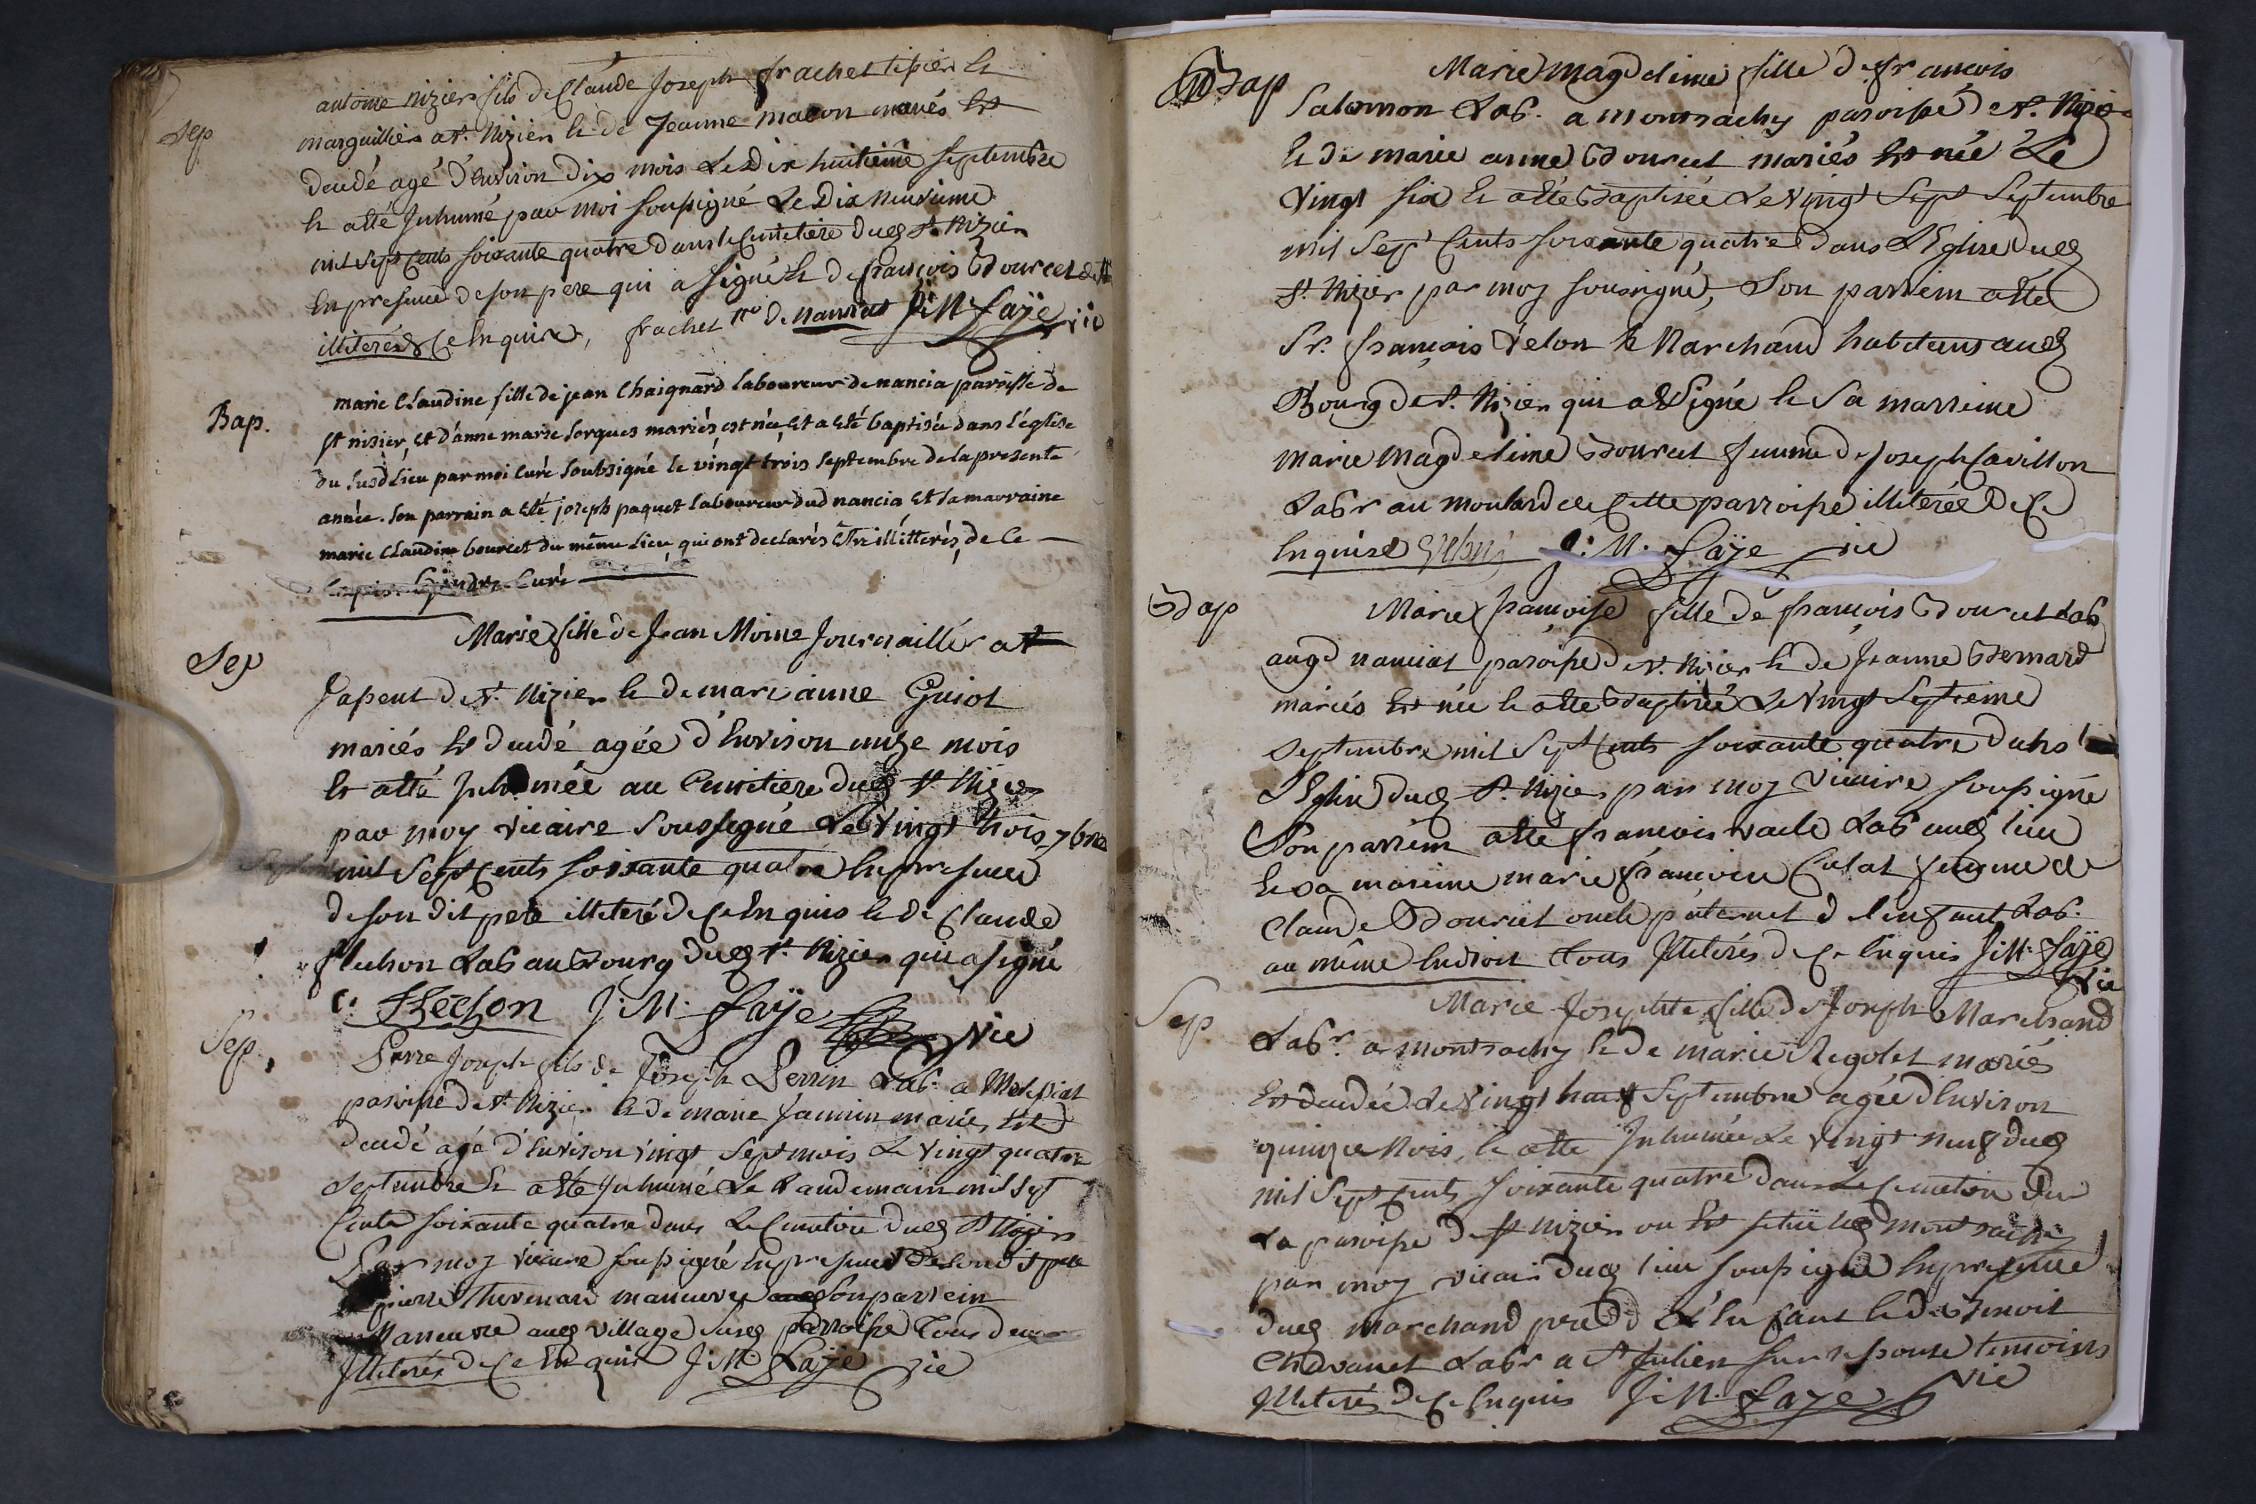 Sep
antoine nizier fils de Claude Joseph frachet tipier Et
marguillier a st. Nizier Et de Jeanne macon mariés Est
decedé agé d'Environ dix mois Le dix huitieme septembre
Et a été Inhumé par moi soussigné Le dix neuvieme
mil sept Cents soixante quatre dans le Cimetiere dud st. Nizier
En presence de son pere qui a signé Et de françois Bourcet
illiteré de Ce Enquise, frachet de nanciat J: M: Faÿe vic
Bap.
marie Claudine fille de jean Chaignard laboureur de nancia paroisse de
st nisier, et d'anne marie sorgues mariés, est née, et a eté baptisée dans l'église
du susd Lieu par moi Curé soubsigné le vingt trois septembre de la presente
année. son parrain a eté joseph paquet laboureur dud nancia et sa marraine
marie Claudine bourcet du même Lieu, qui ont declarés être illitterés, de Ce
Enquis. Curé
Sep
Marie fille de Jean Moine Journaillier at
Japeut de st. Nizier Et de mari anne Guiot
mariés Est decedé agée d'Environ unze mois
Et a été Inhumée au Cimetiere dud st Nizier
par moy vicaire soussigné Le vingt trois 7bre
mil sept Cents soixante quatre En presence
de son dit pere illiteré de Ce Enquis Et de Claude
flechon Lab au Bourg dud st. Nizier qui a signé
C: Flechon J: M: Faÿe Vic
Sep.
Pierre Joseph fils de Joseph Perrin Lab. a
paroisse de st. Nizier Et de marie Jannin mariés Est
decedé agé d'Environ vingt sept mois Le vingt quatre
septembre Et a été Inhumé Le Landemain mil sept
Cents soixante quatre dans Le Cimetiere dud st Nizier
Par moy vicaire soussigné En presence de son dit pere
pierre Thevenard maneuvre son parrein
Maneuvre aud village susd parroisse Tous deux
Illiterés de Ce Enquis J: M: Faÿe vic
Bap
Marie Magdeleine fille de francois
Salomon Lab. a montrachy paroisse de st. Nizier
Et de marie anne Bourcet mariés Est née Le
vingt six Et a été Baptisée Le vingt sept septembre
mil sept Cents soixante quatre dans L'Eglise dud
st. Nizier par moy soussigné, son parrein a été
Sr. françois velon Marchand habitant aud
Bourg de st. Nizier qui a signé Et sa marreine
Marie Magdeleine Bourcet femme de Joseph Cavillon
Labr au moulard de Cette parroisse illiterée de Ce
Enquise J: M: Faÿe vic
Bap
Marie françoise fille de françois Bourcet Lab
aud nanciat paroisse de st. Nizier Et de Jeanne Bernard
mariés Est née Et a été Baptisée Le vingt septieme
septembre mil sept Cents soixante quatre dans
L'Eglise dud st. Nizier par moy vicaire soussigné
Son parrein a été francois vacle Lab aud lieu
Et sa mareine marie françoise Culat femme de
Claude Bourcet oncle paternel de l'enfant Lab.
au même Endroit Tous Illiterés de Ce Enquis J: M: Faÿe
vic
Sep.
Marie Josephte fille de Joseph Marchand
Labr. a montrachy Et de marie Regolet mariés
Est decedée Le vingt huit septembre agée d'Environ
quinze Mois, Et a été Inhumée Le vingt neuf dud
mil sept Cents soixante quatre dans Le Cimetiere de
La paroisse de st nizier ou Est situé led montrachy
par moy vicaire dud lieu soussigné En presence
dud marchand pere de L'Enfant Et de Benoit
Chavanet Labr a st Julien sur ressouse temoins
Illiterés de Ce Enquis J: M: Faÿe vic